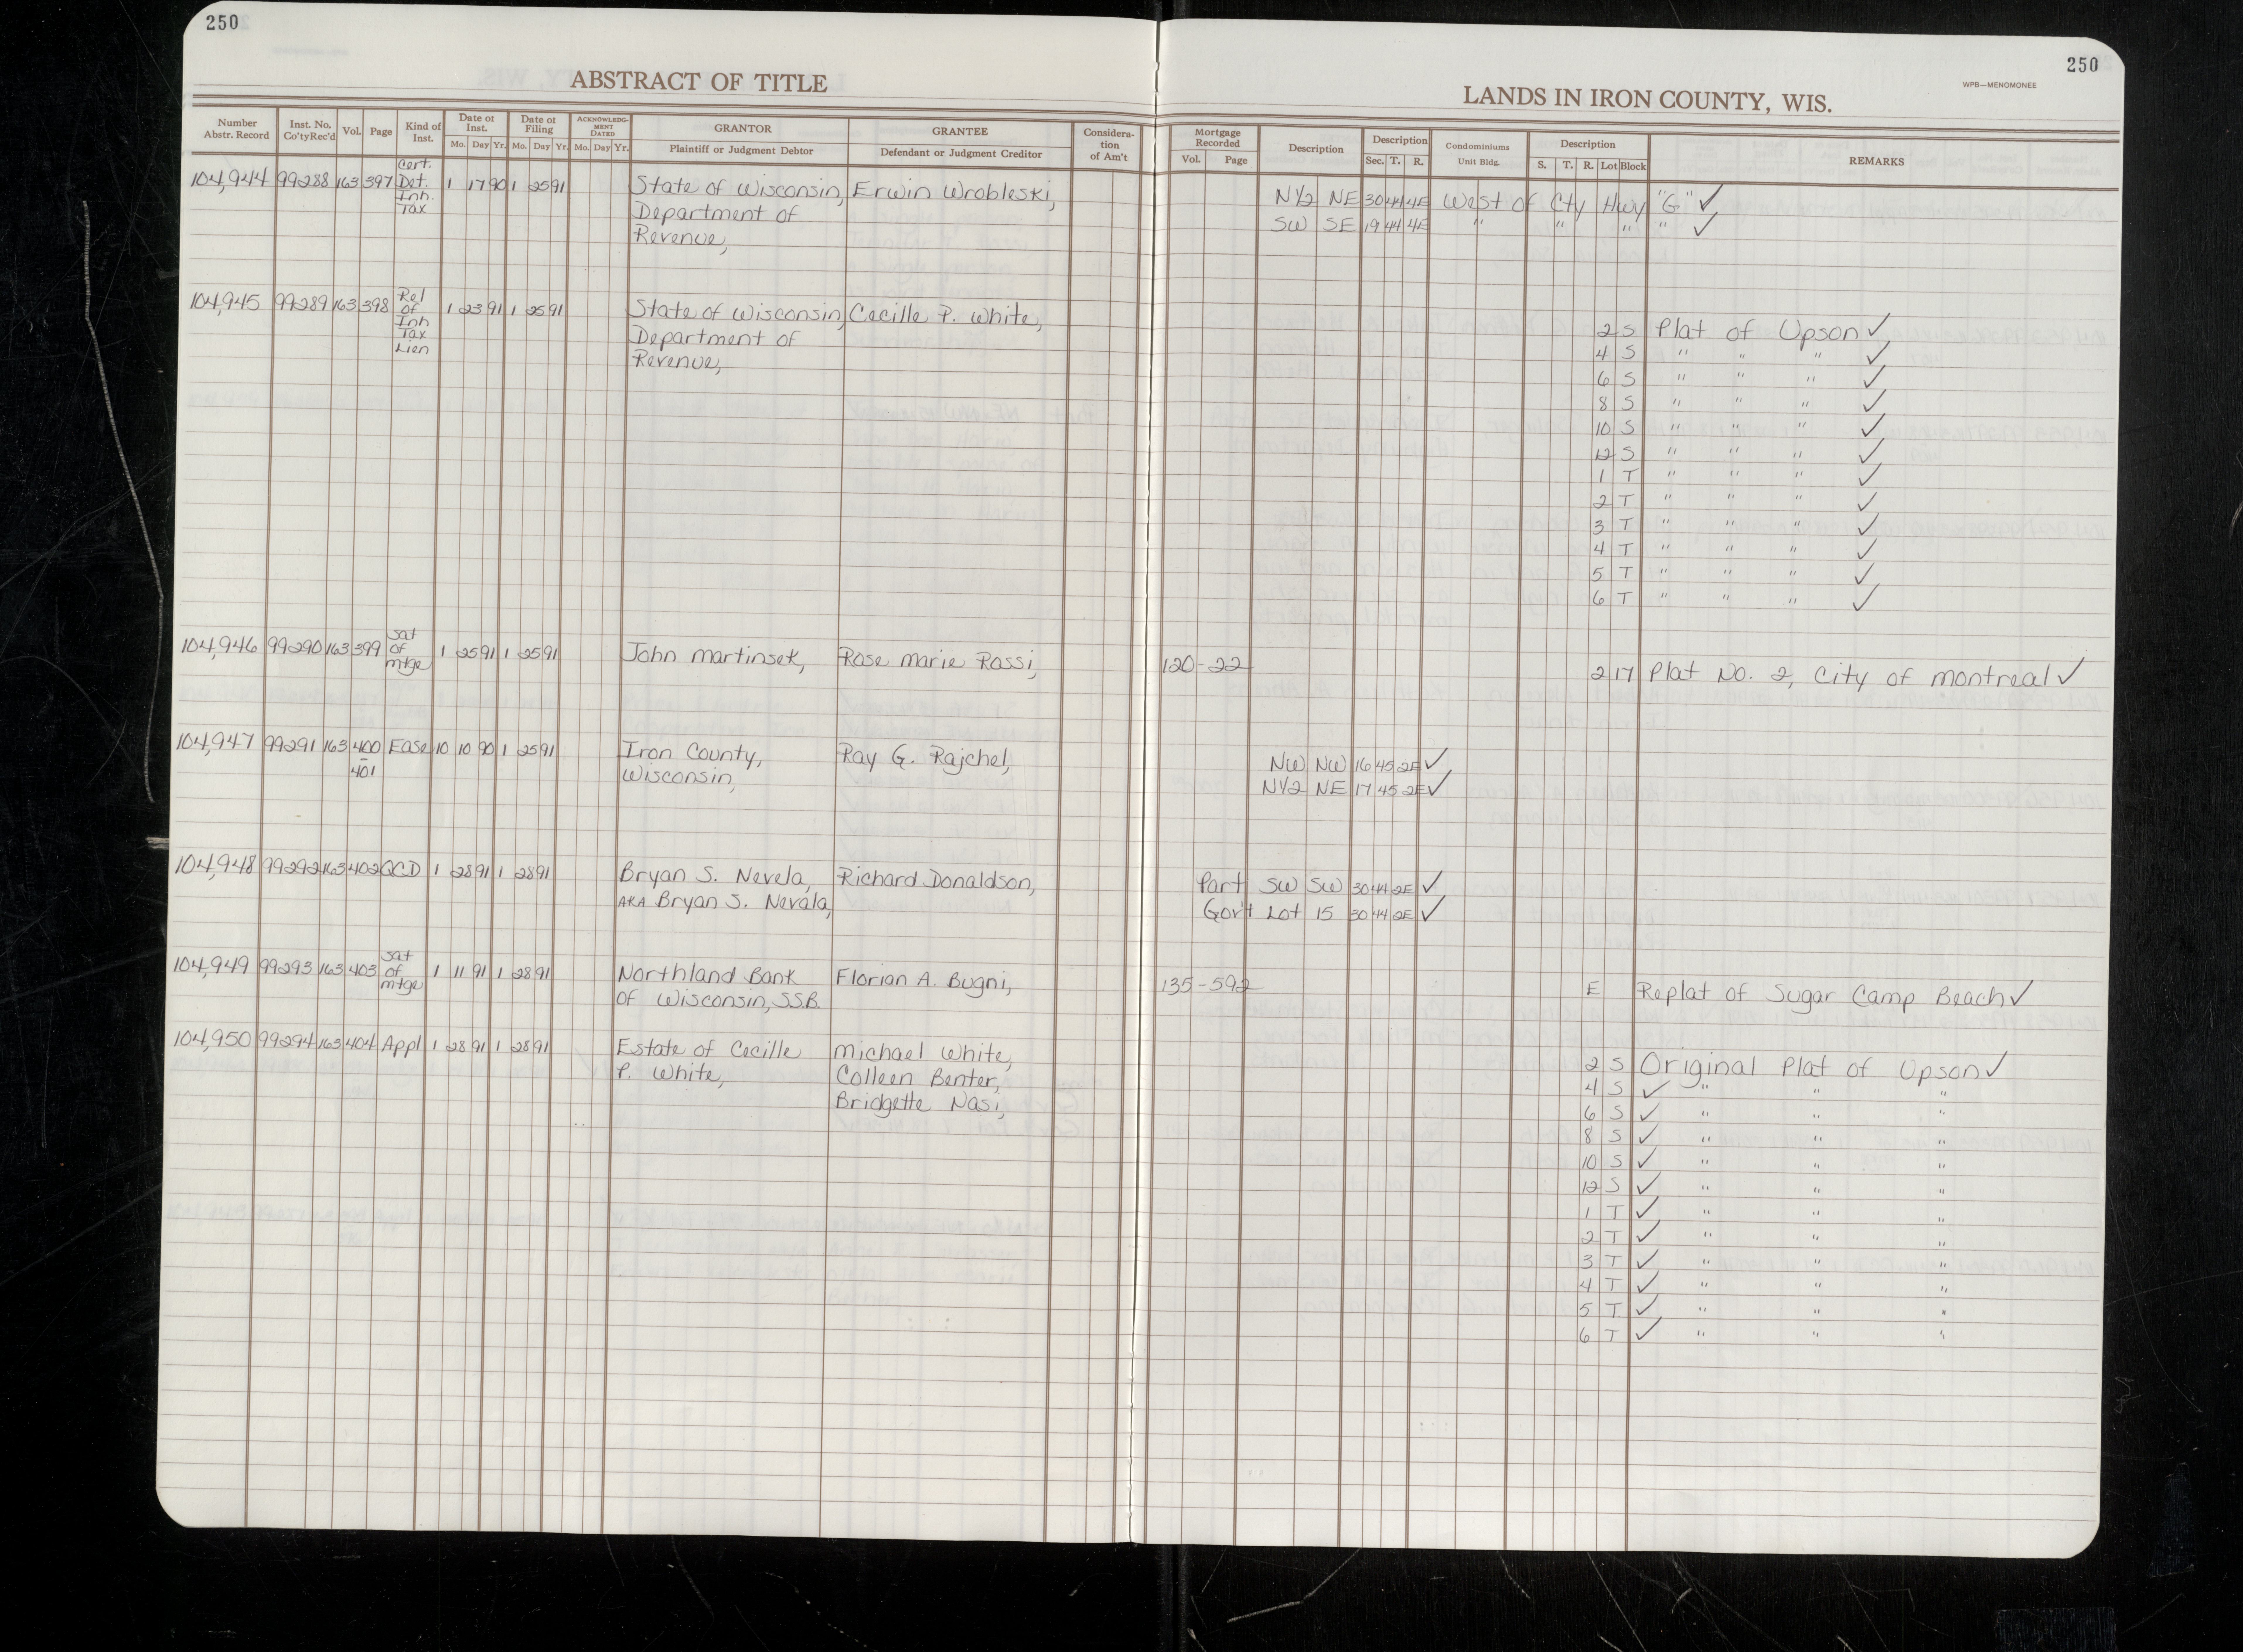 250
250
ABSTRACT OF TITLE
LANDS IN IRON COUNTY, WIS.
WPB—MENOMONEE
Number Abstr. Record
Inst. No. Co'tyRec'd
Vol.
Page
Kind of Inst.
Date of Inst.
Mo. Day Yr.
Date of Filing
Mo. Day Yr.
ACKNOWLEDG-MENT DATED
Mo. Day Yr.
GRANTOR
Plaintiff or Judgment Debtor
GRANTEE
Defendant or Judgment Creditor
Considera-tion of Am't
Mortgage Recorded
Vol. Page
Description
Description
Sec. T. R.
Condominiums
Unit Bldg.
Description
S. T. R. Lot Block
REMARKS
104,944 99288 163 397 Cert. Det. Inh. Tax 1 17 90 1 25 91 State of Wisconsin, Erwin Wrobleski, N1/2 NE 30 44 4E West of Cty Hwy "G" ✓
Department of SW SE 19 44 4E " " " " ✓
Revenue,
104,945 99289 163 398 Rel of Inh Tax Lien 1 23 91 1 25 91 State of Wisconsin, Cecille P. White, 2 S Plat of Upson ✓
Department of 4 S " " " ✓
Revenue, 6 S " " " ✓
8 S " " " ✓
10 S " " " ✓
12 S " " " ✓
1 T " " " ✓
2 T " " " ✓
3 T " " " ✓
4 T " " " ✓
5 T " " " ✓
6 T " " " ✓
104,946 99290 163 399 Sat of mtge 1 25 91 1 25 91 John Martinsek, Rose Marie Rossi, 120-22 2 17 Plat No. 2, City of Montreal ✓
104,947 99291 163 400-401 Ease 10 10 90 1 25 91 Iron County, Ray G. Rajchel, NW NW 16 45 2E ✓
Wisconsin, N1/2 NE 17 45 2E ✓
104,948 99292 163 402 QCD 1 28 91 1 28 91 Bryan S. Nevela, Richard Donaldson, Part SW SW 30 44 2E ✓
AKA Bryan S. Nevala, Gov't Lot 15 30 44 2E ✓
104,949 99293 163 403 Sat of mtge 1 11 91 1 28 91 Northland Bank Florian A. Bugni, 135-592 E Replat of Sugar Camp Beach ✓
of Wisconsin, S.S.B.
104,950 99294 163 404 Appl 1 28 91 1 28 91 Estate of Cecille Michael White, 2 S Original Plat of Upson ✓
P. White, Colleen Benter, 4 S ✓ " " "
Bridgette Nasi, 6 S ✓ " " "
8 S ✓ " " "
10 S ✓ " " "
12 S ✓ " " "
1 T ✓ " " "
2 T ✓ " " "
3 T ✓ " " "
4 T ✓ " " "
5 T ✓ " " "
6 T ✓ " " "